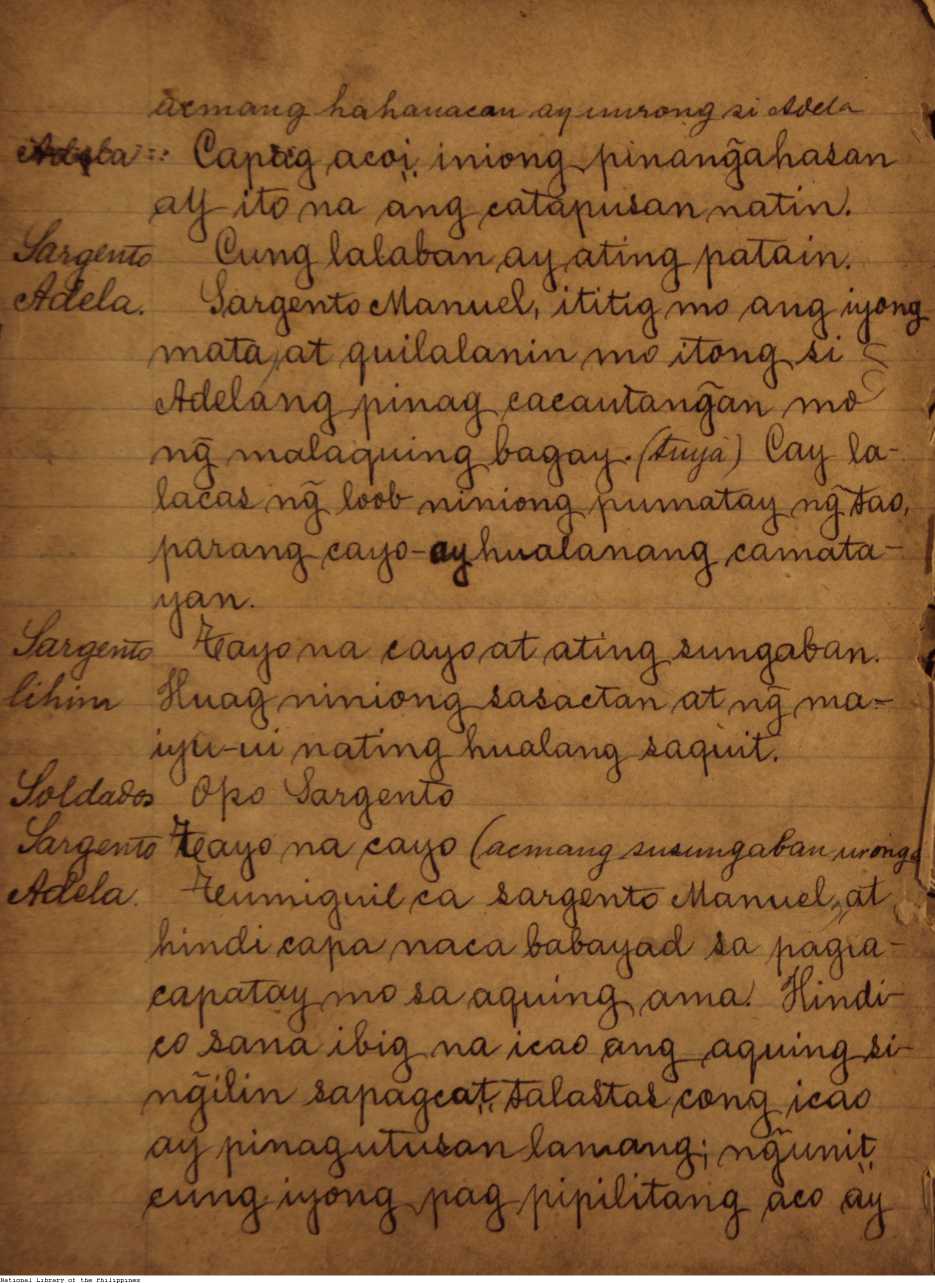 acmang hahauacan ay uurong si Adela
Adela Capag acoi, iniong pinang̃ahasan
ay ito na ang catapusan natin.
Sargento Cung lalaban ay ating patain.
Adela. Sargento Manuel, ititig mo ang iyong
mata, at quilalanin mo itong si
Adelang pinag cacautang̃an mo
ng̃ malaquing bagay. (tuya) Cay la-
lacas ng̃ loob niniong pumatay ng̃ tao,
parang cayo-ay hualanang camata-
yan.
Sargento Tayo na cayo at ating sungaban.
lihim Huag niniong sasactan at ng̃ ma-
iyu-ui nating hualang saquit.
Soldados Opo Sargento
Sargento Tayo na cayo (acmang susungaban urong
Adela. Tumiguil ca sargento Manuel, at
hindi capa naca babayad sa pagca-
capatay mo sa aquing ama. Hindi-
co sana ibig na icao ang aquing si-
ng̃ilin sapagcat, talastas cong icao
ay pinagutusan lamang; ng̃unit
cung iyong pag pipilitang aco ay
National Library of the Philippines